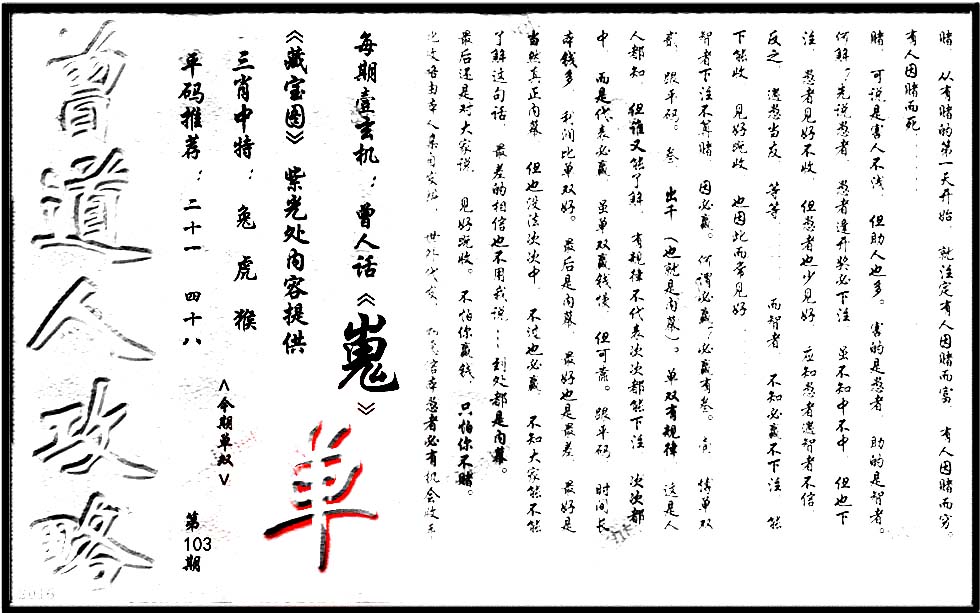 赌 从有赌的第一天开始 就注定有人因赌而富 有人因赌而穷。
有人因赌而死……
赌 可说是害人不浅 但助人也多。害的是愚者 助的是智者。
何解？先说愚者 愚者逢开奖必下注 虽不知中不中 但也下
注 愚者见好不收 但愚者也少见好 应知愚者遇智者不信
反之 遇愚当友 等等…… 而智者 不知必赢不下注 能
下能收 见好就收 也因此而常见好……
智者下注不算赌 因必赢。何谓必赢？必赢有叁。 单双
贰 跟平码。叁 出千（也就是内幕）。单双有规律 这是人
人都知 但谁又能了解 有规律不代表次次都能下注 次次都
中 而是代表必赢 虽单双赢钱慢 但可靠。跟平码 时间长
本钱多 利润比单双好。最后是内幕 最好也是最差 最好是
当然真正内幕 但也没法次次中 不过也必赢 不知大家能不能
了解这句话 最差的相信也不用我说……到处都是内幕。
最后还是对大家说 见好就收。不怕你赢钱 只怕你不赌。
愚者必有机会收手
每期壹玄机：曾人话《嵬》
《藏宝图》紫光处内容提供
三肖中特： 兔 虎 猴
平码推荐：二十一 四十八
<今期单双>
单
第103期
曾道人攻略
2016